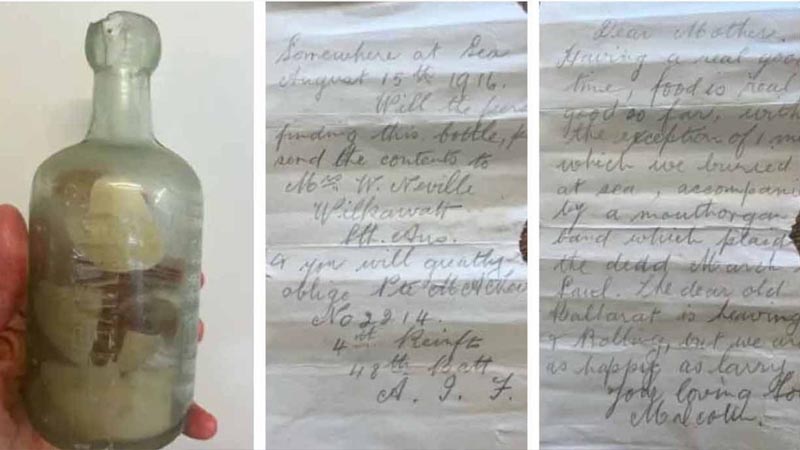 Somewhere at Sea
August 15th 1916.
Will the
finding this bottle,
send the contents to
Mrs W. Neville
Wilkawatt
Sth. Aus.
& you will greatly
oblige Pte M A
No 2214.
4th Reinft
48th Batt
A. I. F.
Dear Mother.
Having a real good
time, food is real
good so far, with
the exception of 1 m
which we buried
at sea, accompani
by a mouthorgan
band which plaid
the dead March
Saul. The dear old
Ballarat is heaving
& Rolling, but we are
as happy as larry
Your loving Son
Malcolm.